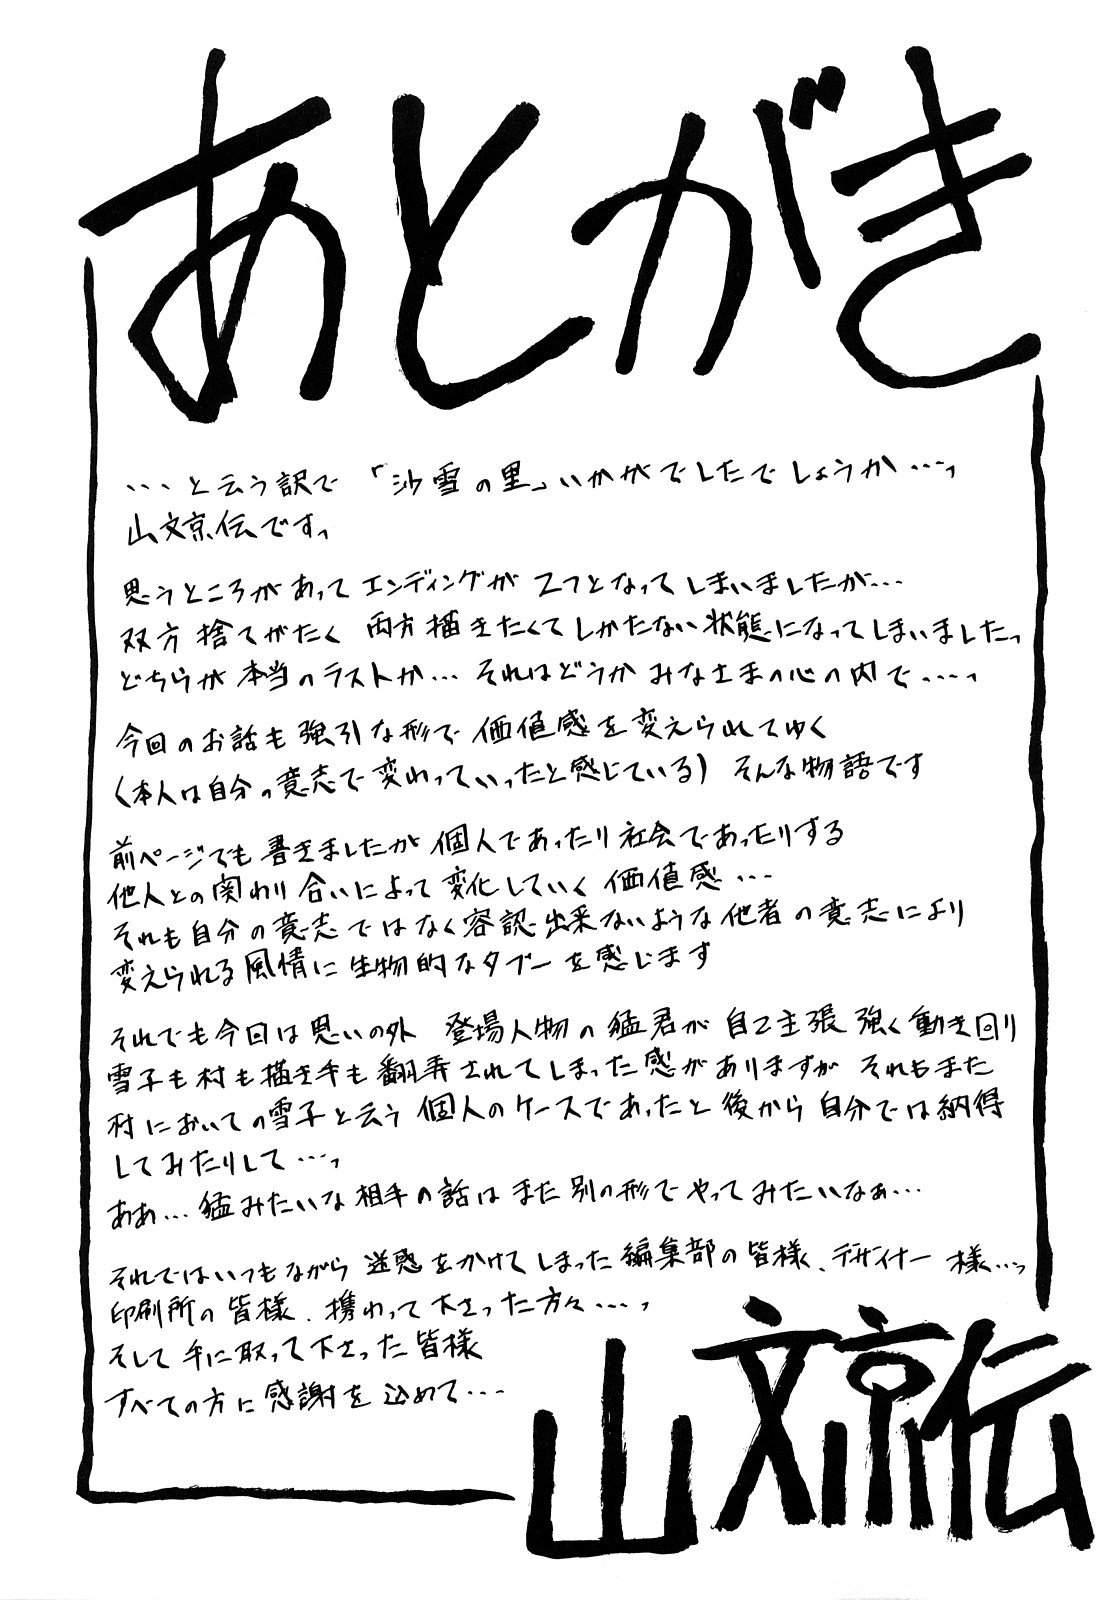 あとがき
…と云う訳で 「沙雪の里」いかがでしたでしょうか…。
山文京伝です。
思うところがあって エンディングが 2つとなって しまいましたが…
双方 捨てがたく 両方 描きたくて しかたない 状態になってしまいました。
どちらが 本当の ラストか… それは どうか みなさまの 心の 内で…。
今回の お話も 強引な 形で 価値感を 変えられてゆく
(本人は自分の意志で 変わっていったと感じている) そんな物語です
前ページでも 書きましたが 個人であったり 社会であったりする
他人との関わり 合いによって 変化していく 価値感…
それも 自分の意志ではなく 容認出来ないような 他者の意志により
変えられる 風情に 生物的なタブーを 感じます
それでも今回は 思いの外 登場人物の 猛君が 自己主張強く 動き回り
雪子も村も描き手も 翻弄されてしまった感がありますが それもまた
村においての雪子と云う 個人のケースであったと 後から 自分では納得
してみたりして…。
ああ… 猛みたいな 相手の話は また 別の形で やってみたいなぁ…
それではいつもながら 迷惑をかけてしまった 編集部の 皆様、デザイナー 様…。
印刷所の 皆様、携わって下さった方々…。
そして 手に取って下さった 皆様
すべての方に 感謝を 込めて…
山文京伝